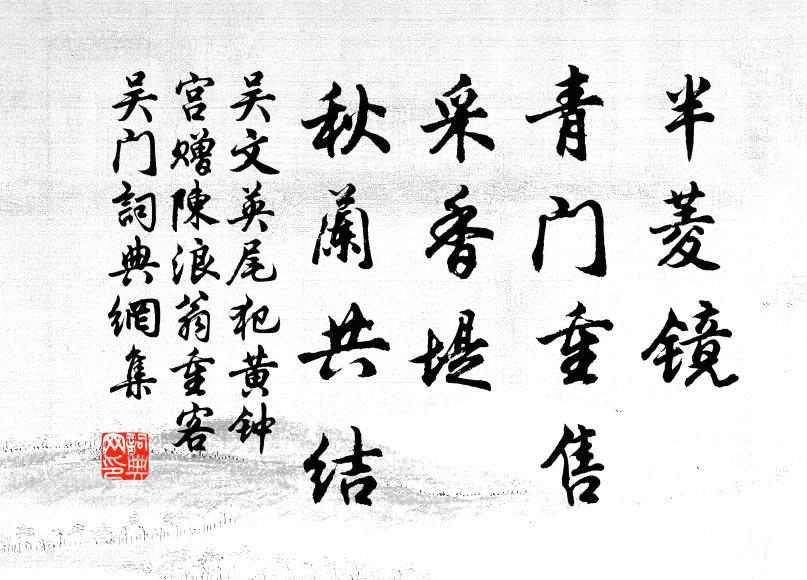 半菱镜
青门重售
采香堤
秋蘭共结
吴文英尾犯黄钟
宫赠陳浪翁重客
吴门詞典網集
詞典网印